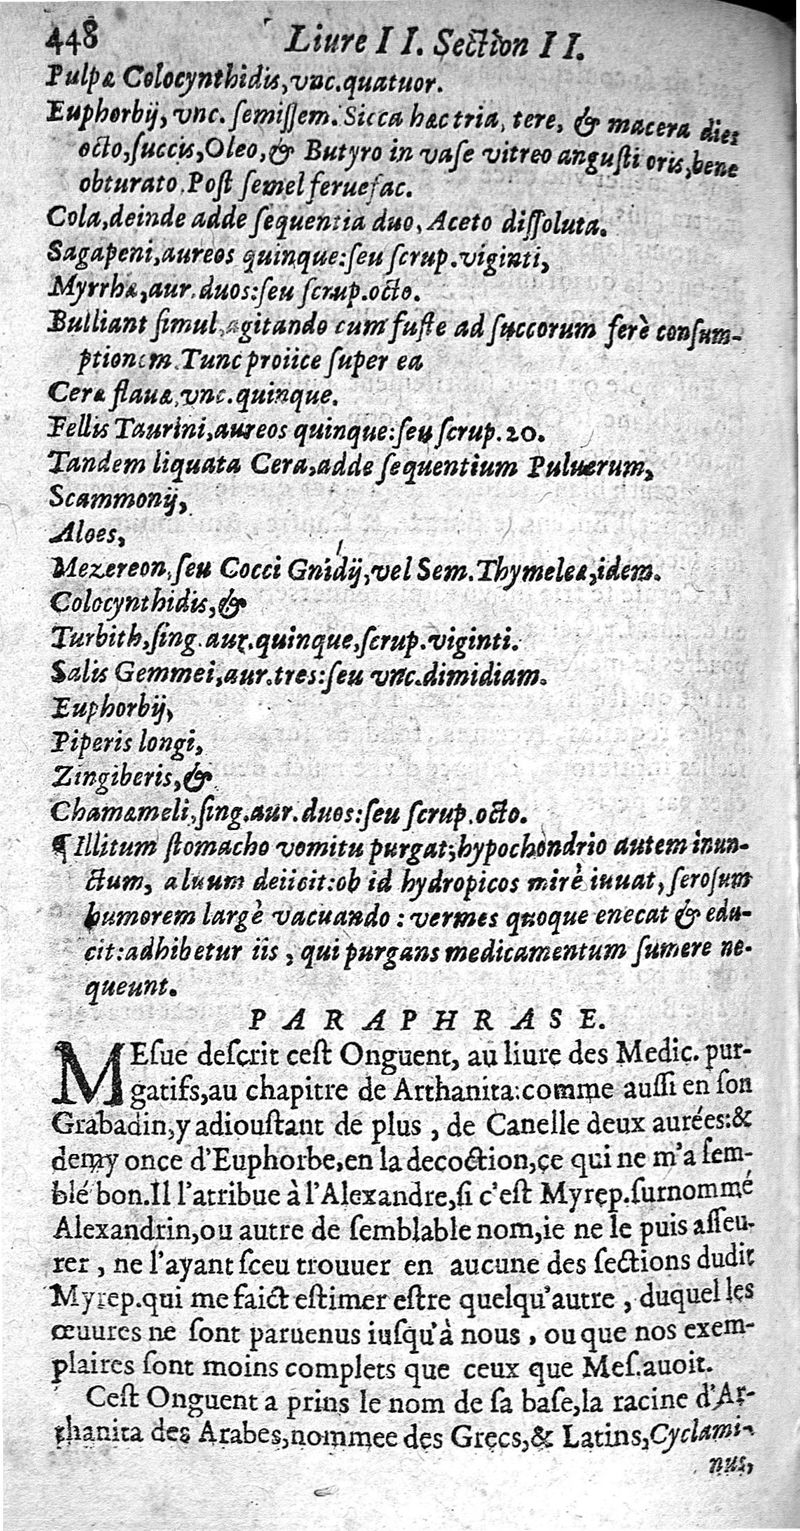 448 Liure II. Section II.
Pulpæ Colocynthidis, vnc. quatuor.
Euphorbij, vnc. ſemiſſem. Sicca hæc tria, tere, & macera dies
octo, ſuccis, Oleo, & Butyro in vaſe vitreo anguſti oris, bene
obturato. Poſt ſemel feruefac.
Cola, deinde adde ſequentia duo, Aceto diſſoluta.
Sagapeni, aureos quinque: ſeu ſcrup. viginti,
Myrrhæ, aur. duos: ſeu ſcrup. octo.
Bulliant ſimul, agitando cum fuſte ad ſuccorum ferè conſum-
ptionem. Tunc proiice ſuper ea
Ceræ flauæ, vnc. quinque.
Fellis Taurini, aureos quinque: ſeu ſcrup. 20.
Tandem liquata Cera, adde ſequentium Puluerum,
Scammonij,
Aloes,
Mezereon, ſeu Cocci Gnidij, vel Sem. Thymeleæ, idem.
Colocynthidis, &
Turbith, ſing. aur. quinque, ſcrup. viginti.
Salis Gemmei, aur. tres: ſeu vnc. dimidiam.
Euphorbij,
Piperis longi,
Zingiberis, &
Chamæmeli, ſing. aur. duos: ſeu ſcrup. octo.
¶ Illitum ſtomacho vomitu purgat; hypochondrio autem inun-
ctum, aluum deiicit: ob id hydropicos mirè iuuat, ſeroſum
humorem largè vacuando: vermes quoque enecat & edu-
cit: adhibetur iis, qui purgans medicamentum ſumere ne-
queunt.
PARAPHRASE.
MEſue deſcrit ceſt Onguent, au liure des Medic. pur-
gatifs, au chapitre de Arthanita: comme auſſi en ſon
Grabadin, y adiouſtant de plus, de Canelle deux aurées: &
demy once d'Euphorbe, en la decoction, ce qui ne m'a ſem-
blé bon. Il l'atribue à l'Alexandre, ſi c'eſt Myrep. ſurnommé
Alexandrin, ou autre de ſemblable nom, ie ne le puis aſſeu-
rer, ne l'ayant ſceu trouuer en aucune des ſections dudit
Myrep. qui me faict eſtimer eſtre quelqu'autre, duquel les
œuures ne ſont paruenus iuſqu'à nous, ou que nos exem-
plaires ſont moins complets que ceux que Meſ. auoit.
Ceſt Onguent a prins le nom de ſa baſe, la racine d'Ar-
thanita des Arabes, nommee des Grecs, & Latins, Cyclami-
nus,